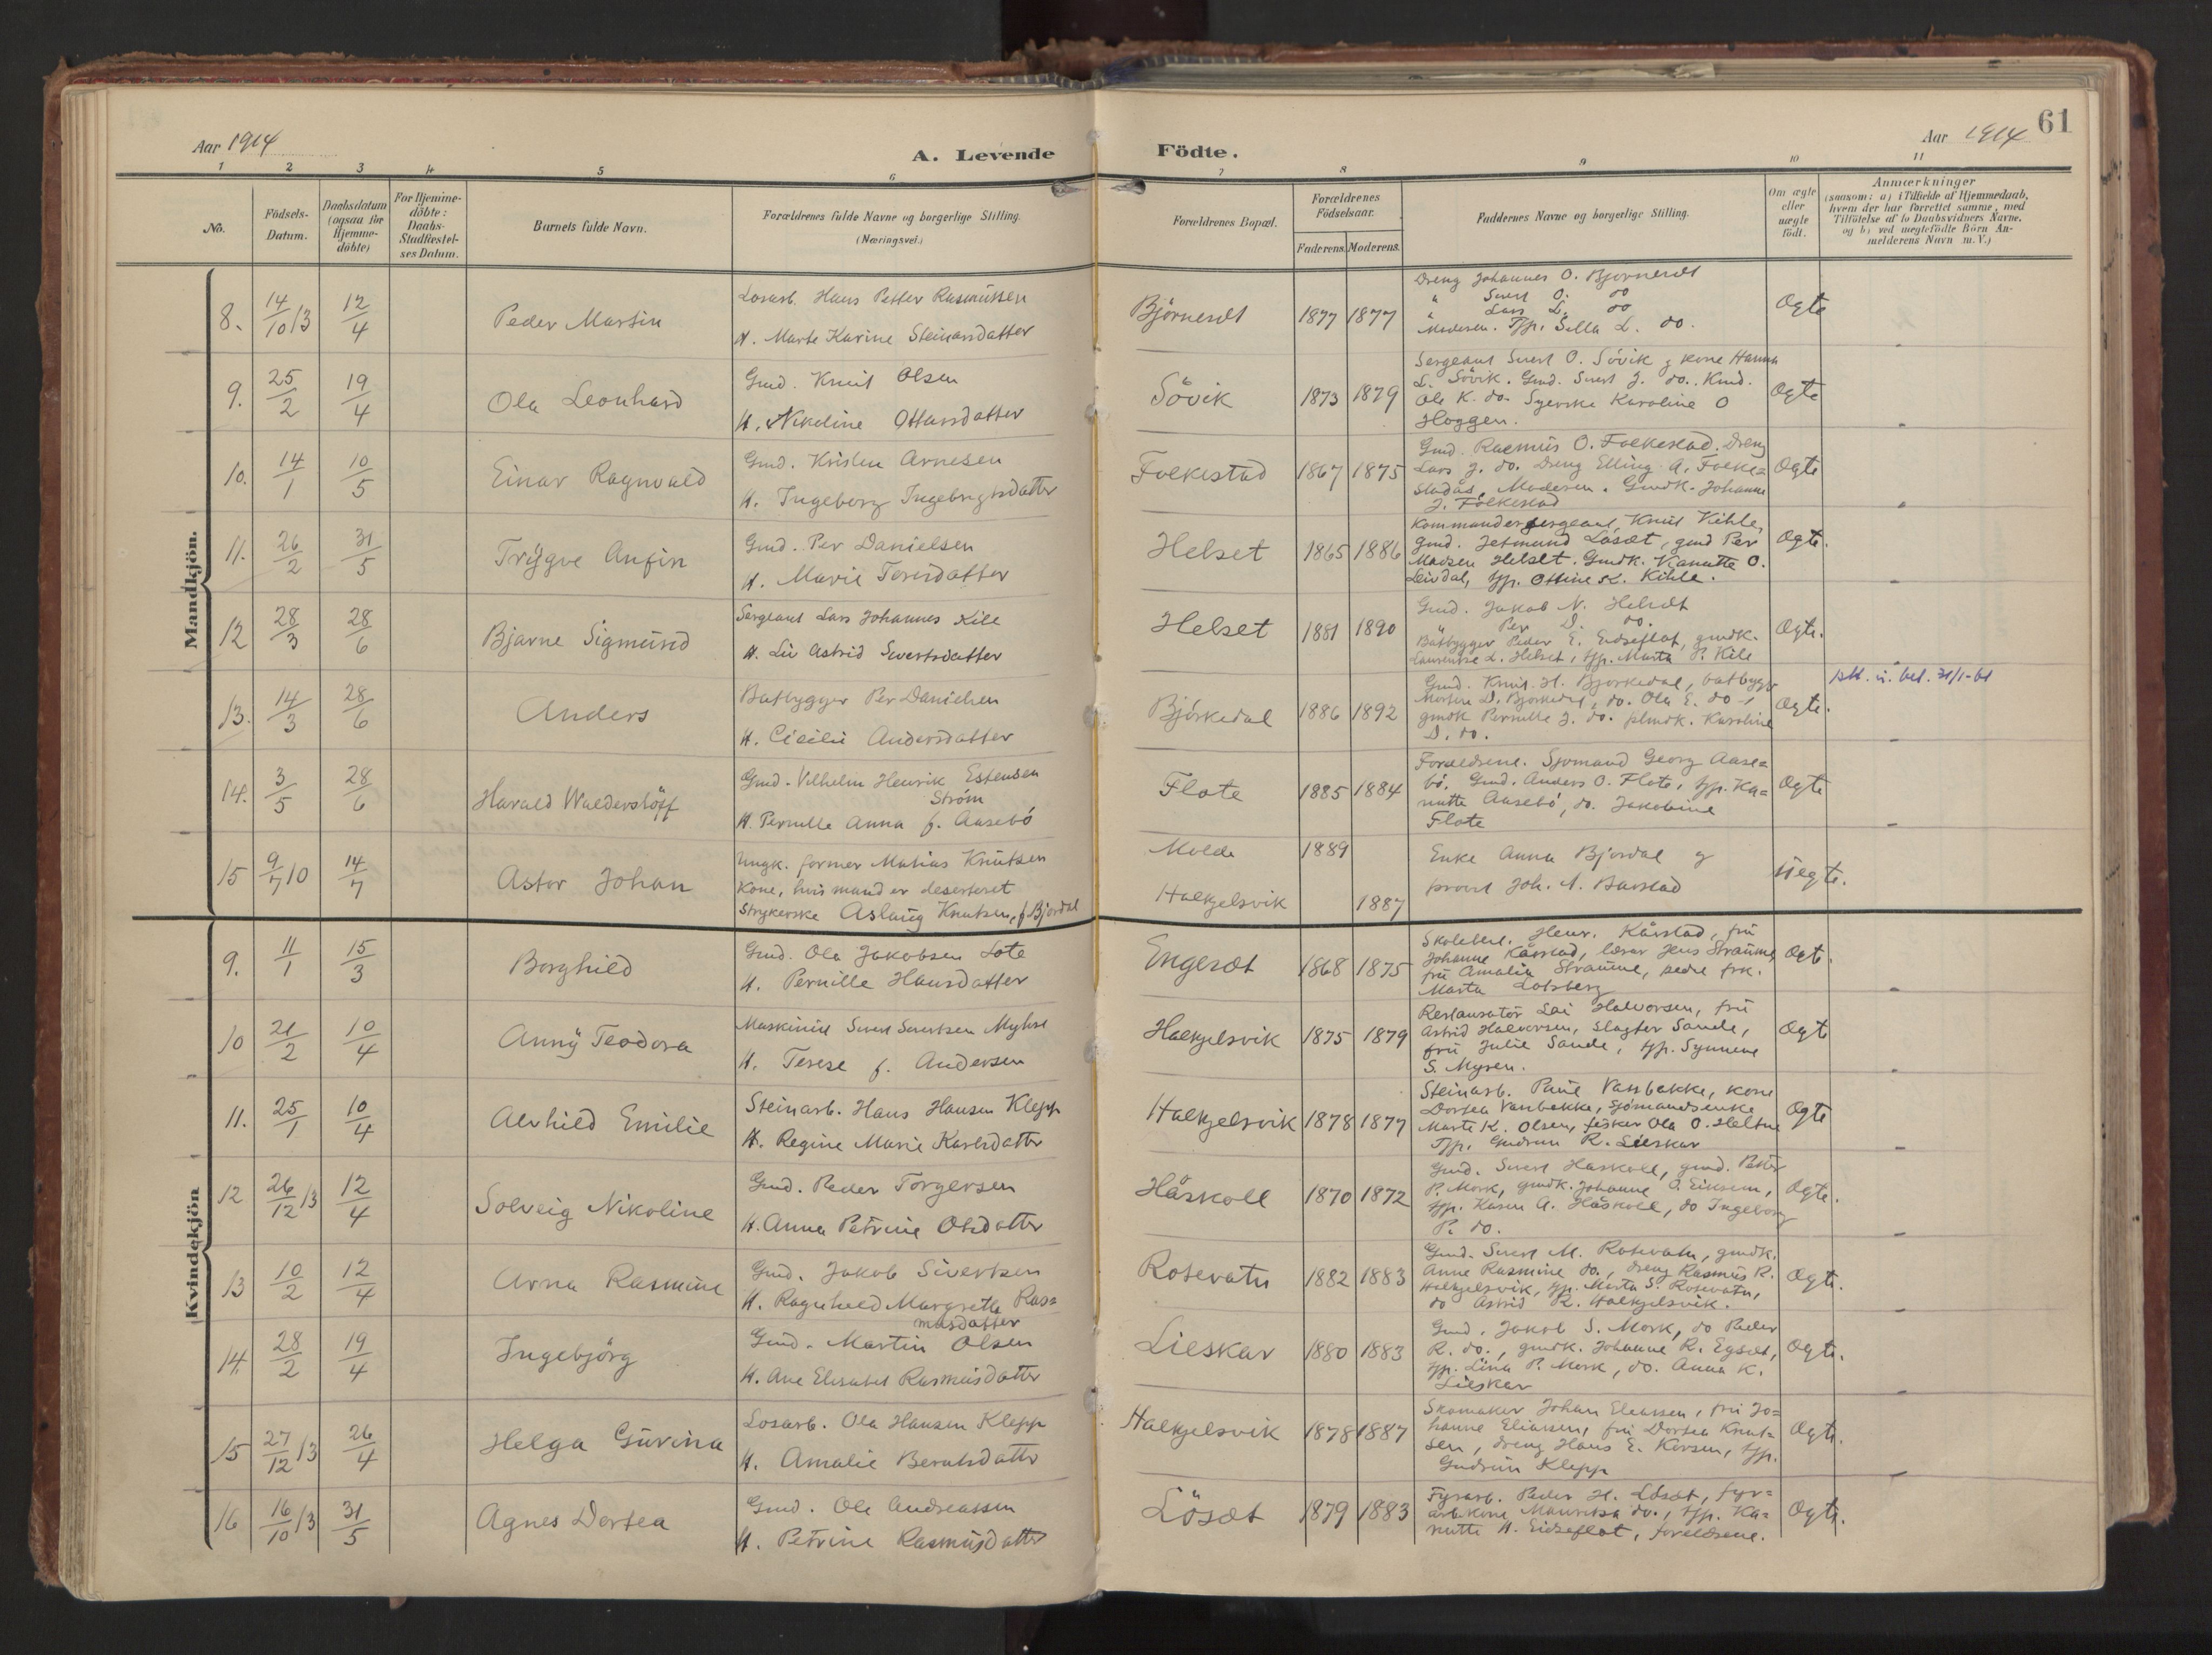 61
Aar 1914
A. Levende
Födte.
Aar 1914
1 2 3 4 5 6 7 8 9 10 11
No.
Födsels-
Datum.
Daabsdatum
(ogsaa for
Hjemme-
döbte)
For Hjemme-
döbte:
Daabs-
Stadfæstel-
ses Datum.
Barnets fulde Navn.
Forældrenes fulde Navne og borgerlige Stilling.
(Næringsvei.)
Forældrenes Bopæl.
Forældrenes
Födselsaar.
Faderens. Moderens.
Faddernes Navne og borgerlige Stilling.
Om ægte
eller
uægte
födt.
Anmærkninger
(saasom: a) i Tilfælde af Hjemmedaab,
hvem der har forrettet samme, med
Tilföielse af to Daabsvidners Navne,
og b) ved uægtefödte Börn An-
melderens Navn m. V.)
Mandkjön.
8. 14/10 13 12/4 Peder Martin
Losarb. Hans Petter Rasmussen
H. Marte Karine Steinarsdatter
Björneset 1877 1877
Dreng Johannes O. Bjorneset
" Sivert O. do
" Lars L. do
Moderen. Tjp. Sella L. do.
Ægte
9. 25/2 19/4 Ola Leonhard
Gmd. Knut Olsen
H. Nikoline Ottarsdatter
Sövik 1873 1879
Sergeant Sivert O. Sövik g kone Hanna
L. Sövik. Gmd. Sivert J. do. Kmd.
Ole K. do. Syerske Karoline O
Hoggen.
Ægte
10. 14/1 10/5 Einar Ragnvald
Gmd. Kristen Arnesen
H. Ingeborg Ingebrigtsdatter
Folkestad 1867 1875
Gmd. Rasmus O. Folkestad. Dreng
Lars J. do. Dreng Elling A. Folke=
stadås, Moderen. Gmdk. Johanne
J. Folkestad
Ægte
11. 26/2 31/5 Trygve Anfin
Gmd. Per Danielsen
H. Marie Toresdatter
Helset 1865 1886
Kommandersergeant Knut Kihle,
gmd. Jetmund Löset, gmd Per
Madsen Helset. Gmdk. Kanutte O.
Leivdal, tjp. Ottine K. Kihle.
Ægte.
12 28/3 28/6 Bjarne Sigmund
Sergeant Lars Johannes Kile
H. Liv Astrid Sivertsdatter
Helset 1881 1890
Gmd. Jakob N. Helset
" Per D. do.
Båtbygger Peder E. Eidseflot, gmdk.
Laurentse L. Helset, tjp. Marta P. Kile
Ægte.
13. 14/3 28/6 Anders
Båtbygger Per Danielsen
H. Cicilie Andersdatter
Björkedal 1886 1892
Gmd. Knut H. Bjorkedal, båtbygger
Morten D. Bjorkedal, do. Ola E. do,
gmdk Pernille J. do. plmdk. Karoline
D. do.
Ægte.
14. 3/5 28/6 Harald Walderslöff
Gmd. Vilhelm Henrik Estensen
Ström
H. Pernille Anna f. Aasebö
Flote 1885 1884
Forældrene. Sjomand Georg Aase=
bö, Gmd. Anders O. Flote, tjp. Ka=
nutte Aasebö, do. Jakobine
Flote
Ægte
15 9/7 10 14/7 Astor Johan
Ungk. former Matias Knutsen
Kone, hvis mand er deserteret
Strykerske Aslaug Knutsen, f. Bjordal
Molde 1889
Halkjelsvik 1887
Enke Anna Bjordal g
provst Joh. A. Barstad
Uegte.
Kvindekjön
9. 11/1 15/3 Borghild
Gmd. Ola Jakobsen Lote
H. Pernille Hansdatter
Engeset 1868 1875
Skolebest. Henr. Kårstad, fru
Johanne Kårstad, lærer Jens Straume,
fru Amalia Straume, frk.
Marta Lotsberg
Ægte.
10 21/2 10/4 Anny Teodora
Maskinist Sivert Sivertsen Myhre
H. Terese f. Andersen
Halkjelsvik 1875 1879
Restauratör Lai Halvorsen, fru
Astrid Halvorsen, slagter Sande,
fru Julie Sande, tjp. Synneve
S. Myren.
Ægt
11. 25/1 10/4 Alvhild Emilie
Steinarb. Hans Hansen Klepp
H. Regine Marie Karlsdatter
Halkjelsvik 1878 1877
Steinarb. Paul Vassbakke, kone
Dortea Vassbakke, sjömandsenke
Marte K. Olsen, fisker Ola O. Heltne
Tjp. Gudrun R. Lieskar
Ægte
12 26/12 13 12/4 Solveig Nikoline
Gmd. Peder Torgersen
H. Anna Petrine Olsdatter
Håskoll 1870 1872
Gmd. Sivert Haskoll, gmd. Peter
P. Mork, gmdk. Johanne O. Eiksem,
tjp. Karen A. Håskoll, do Ingeborg
P. do.
Ægte.
13 10/2 12/4 Arna Rasmine
Gmd. Jakob Sivertsen
H. Ragnhild Margrethe Ras=
musdatter
Rotevatn 1882 1883
Gmd. Sivert M. Rotevatn, gmdk.
Anne Rasmine do., dreng Rasmus R.
Halkjelsvik, tjp. Marta S. Rotevatn,
do Astrid R. Halkjelsvik.
Ægte.
14. 28/2 19/4 Ingebjörg
Gmd. Martin Olsen
H. Ane Elisabet Rasmusdatter
Lieskar 1880 1883
Gmd. Jakob S. Mork, do Peder
R. do., gmdk. Johanne R. Egset,
tjp. Lina P. Mork, do. Anna K.
Lieskar
Ægte.
15 27/12 13 26/4 Helga Gurina
Losarb. Ola Hansen Klepp
H. Amalie Berntsdatter
Halkjelsvik 1878 1887
Skomaker Johan Eliassen, fru Jo=
hanne Eliassen, fru Dortea Knut=
sen, dreng Hans E. Iversen, tjp.
Gudrun Klepp
Ægte.
16 16/10 13 31/5 Agnes Dortea
Gmd. Ole Andreassen
H. Petrine Rasmusdatter
Löset 1879 1883
Fyrarb. Peder H. Löset, fyr=
arb.kone Mauritsa do., tjp. Ka=
nutte H. Eidseflot, foreldrene.
Ægte.